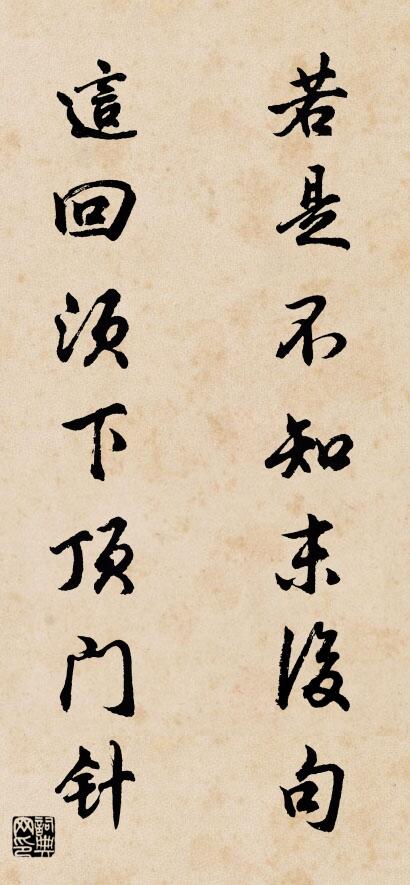 若是不知末後句
這回须下顶门针
詞典网印